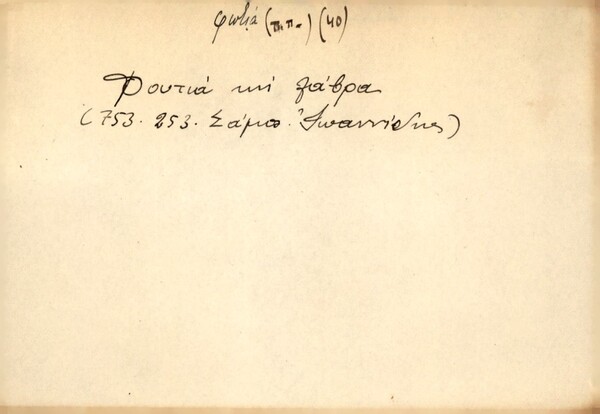 φωτιά (π.π.) (40)
Φουτιά κὴ λάβρα
(753. 253. Σάμο. Ἰωαννίδης)